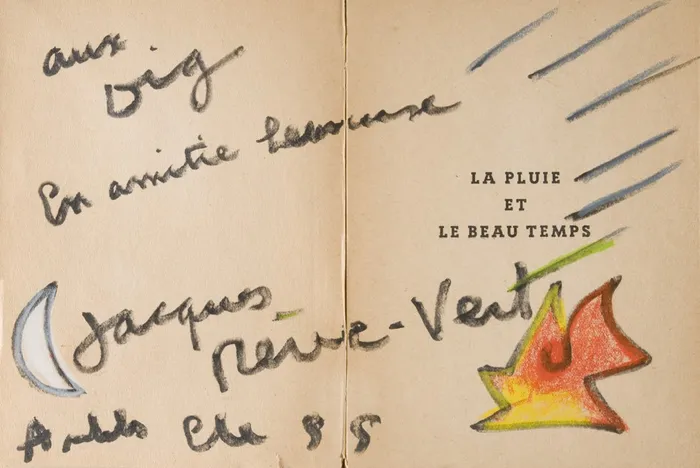 aux
En amitié heureuse
Jacques
-Vert
Ete 55
LA PLUIE
ET
LE BEAU TEMPS